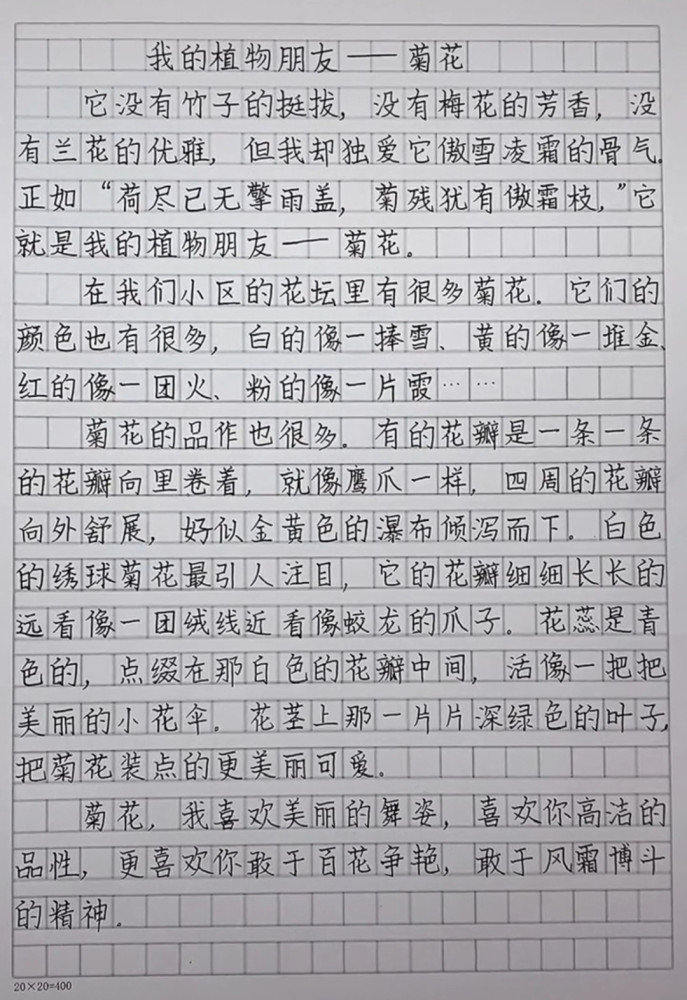 我的植物朋友——菊花
它没有竹子的挺拔，没有梅花的芳香，没
有兰花的优雅，但我却独爱它傲雪凌霜的骨气.
正如“荷尽已无擎雨盖，菊残犹有傲霜枝，”它
就是我的植物朋友——菊花。
在我们小区的花坛里有很多菊花．它们的
颜色也有很多，白的像一捧雪、黄的像一堆金、
红的像一团火、粉的像一片霞……
菊花的品作也很多．有的花瓣是一条一条
的花瓣向里卷着，就像鹰爪一样，四周的花瓣
向外舒展，好似金黄色的瀑布倾泻而下。白色
的绣球菊花最引人注目，它的花瓣细细长长的
远看像一团绒线近看像蛟龙的爪子。花蕊是青
色的，点缀在那白色的花瓣中间，活像一把把
美丽的小花伞。花茎上那一片片深绿色的叶子，
把菊花装点的更美丽可爱。
菊花，我喜欢美丽的舞姿，喜欢你高洁的
品性，更喜欢你敢于百花争艳，敢于风霜博斗
的精神。
20×20=400